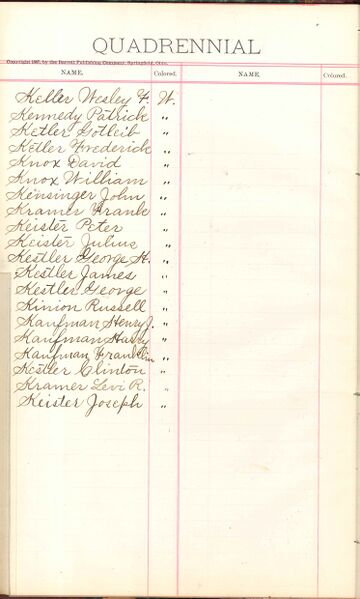 QUADRENNIAL
Copyright 1887, by the Barrett Publishing Company, Springfield, Ohio.
NAME. Colored. NAME. Colored.
Keller Wesley F. W.
Kennedy Patrick "
Ketler Gotleib "
Ketler Frederick "
Knox David "
Knox William "
Kensinger John "
Kramer Frank "
Keister Peter "
Keister Julius "
Kestler George H. "
Kestler James "
Kestler George "
Kinion Russell "
Kaufman Henry J. "
Kaufman Harry "
Kaufman Franklin "
Kestler Clinton "
Kramer Levi R. "
Keister Joseph "